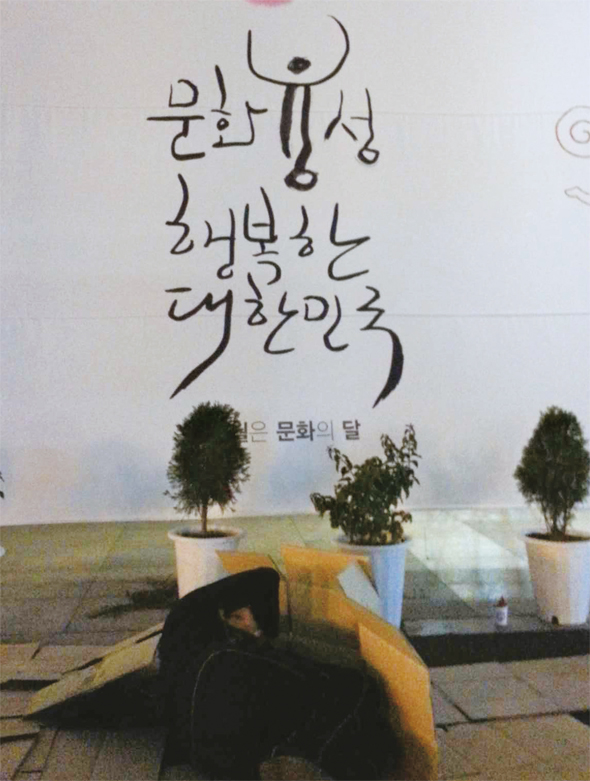 문화융성
행복한
대한민국
월은 문화의 달